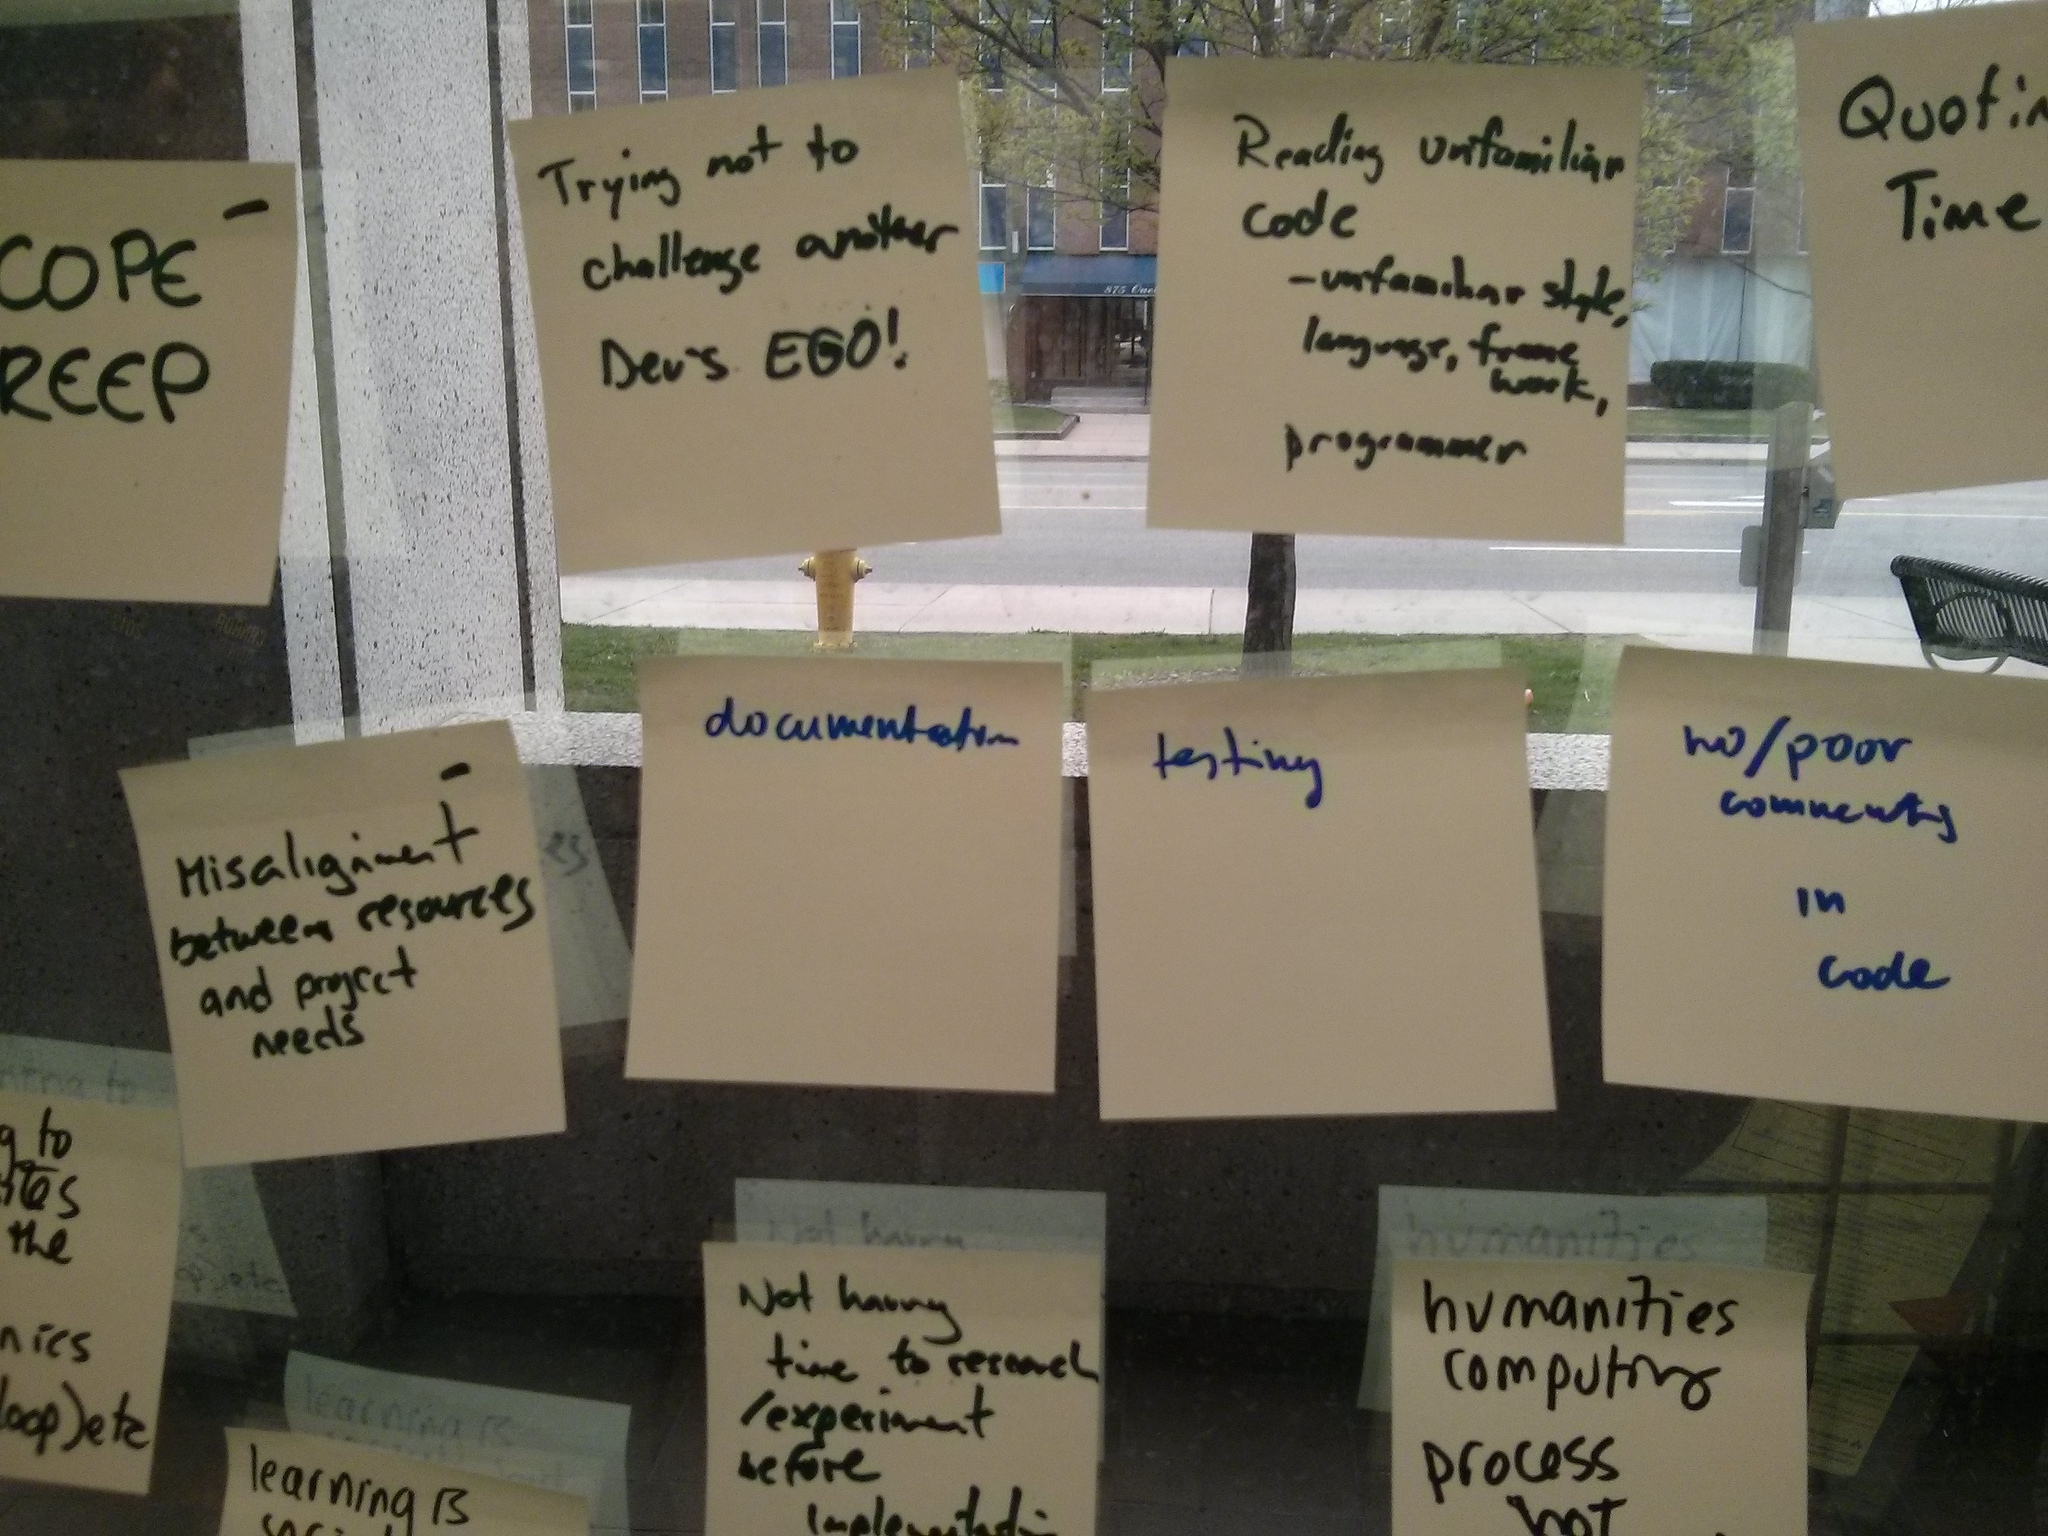 COPE
REEP
Trying not to
challenge another
Dev's EGO!
Reading unfamiliar
code
-unfamiliar style,
language, frame
work,
programmer
Quotin
Time
875
Misalignment
between resources
and project
needs
documentation
testing
no/poor
comments
in
code
g to
the
nics
loop)etc
learning is
Not having
time to research
/experiment
before
implementatio
humanities
computing
process
not
Not having
humanities
learning is